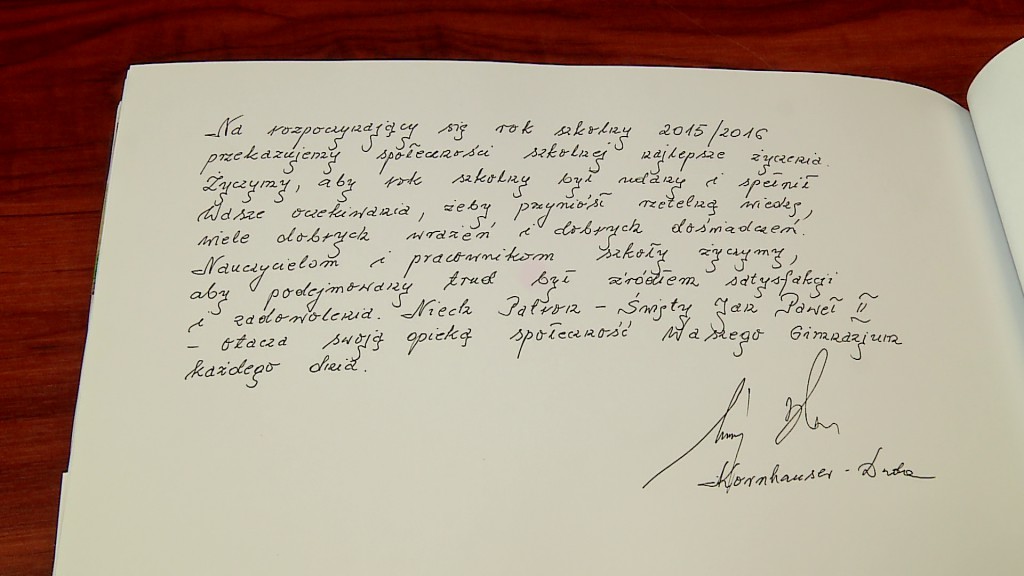 Na rozpoczynający się rok szkolny 2015/2016
przekazujemy społeczności szkolnej najlepsze życzenia.
Życzymy, aby rok szkolny był udany i spełnił
Wasze oczekiwania, żeby przyniósł rzetelną wiedzę,
wiele dobrych wrażeń i dobrych doświadczeń.
Nauczycielom i pracownikom szkoły życzymy,
aby podejmowany trud był źródłem satysfakcji
i zadowolenia. Niech Patron – Święty Jan Paweł II
– otacza swoją opieką społeczność Waszego Gimnazjum
każdego dnia.
Kornhauser - Duda